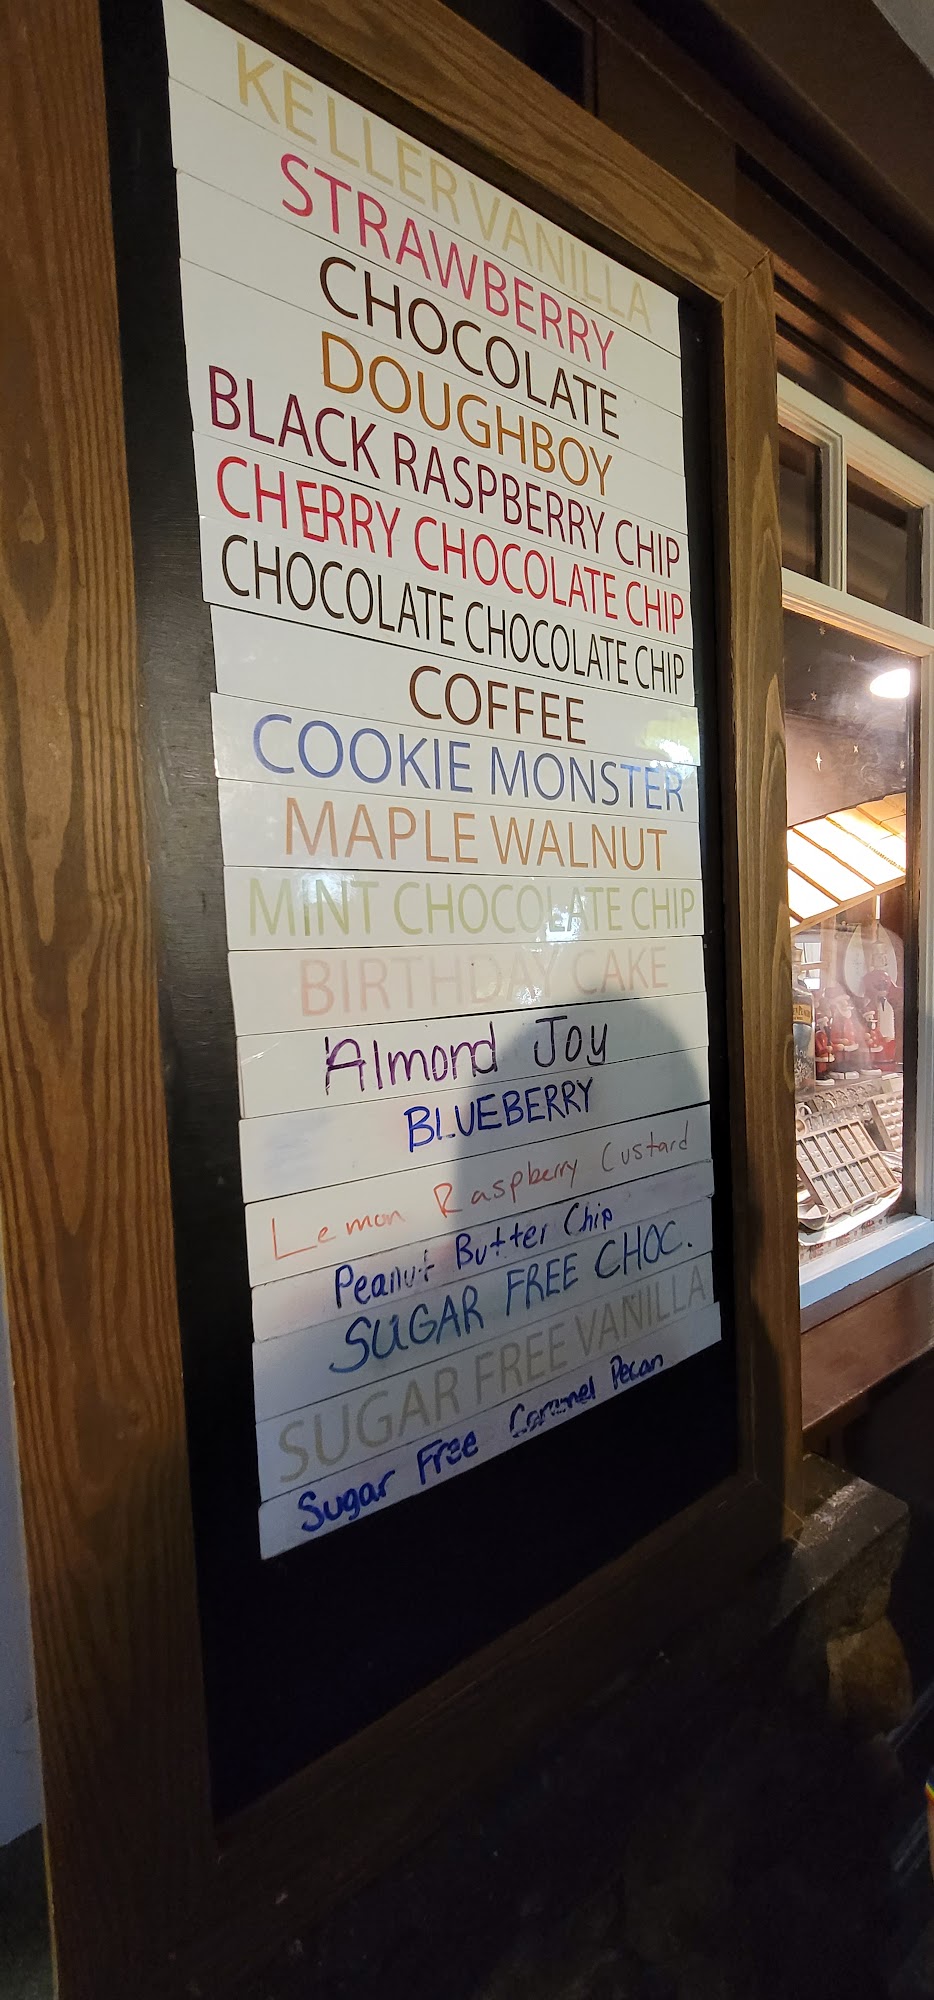 KELLER VANILLA
STRAWBERRY
CHOCOLATE
DOUGHBOY
BLACK RASPBERRY CHIP
CHERRY CHOCOLATE CHIP
CHOCOLATE CHOCOLATE CHIP
COFFEE
COOKIE MONSTER
MAPLE WALNUT
MINT CHOCOLATE CHIP
BIRTHDAY CAKE
Almond Joy
BLUEBERRY
Lemon Raspberry Custard
Peanut Butter Chip
SUGAR FREE CHOC.
SUGAR FREE VANILLA
Sugar Free Caramel Pecan